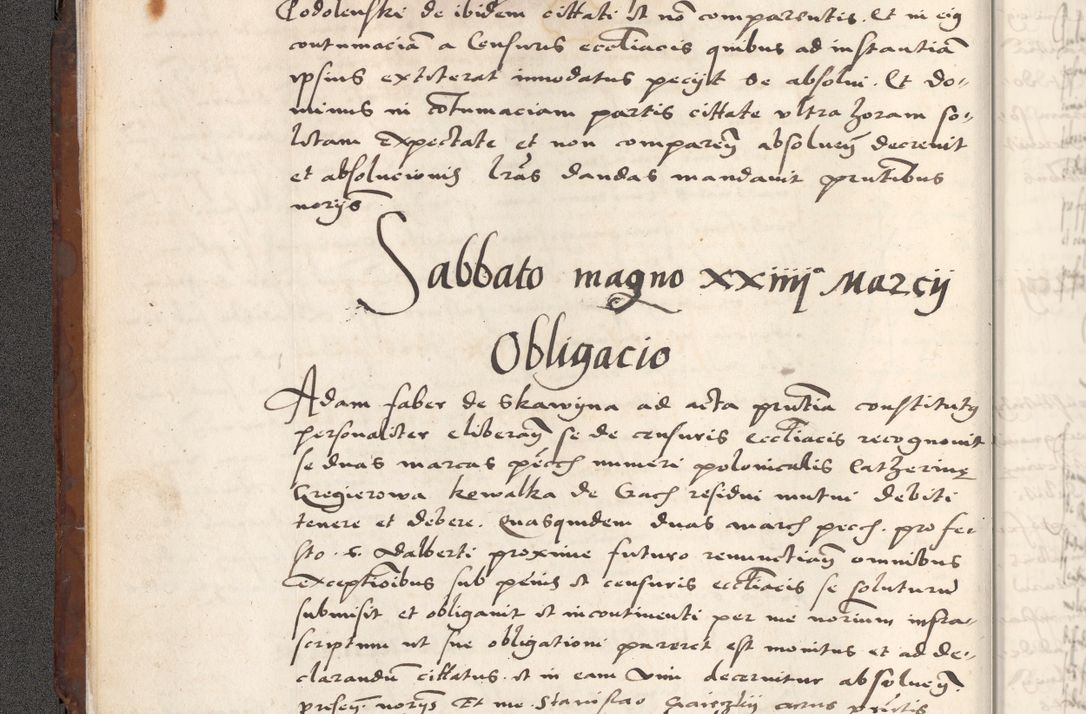 Podolenski de ibidem cittati et no comparentis. Et in eig
contumaciã a Censuris eccĺiacis quibus ad instantiã
ypsius extiterat innodatus peciit se absolui. Et do-
minus in cõtumaciam partis cittate ultra horam so-
litam Expectate et non compareñ absolueñ decreuit
et absolucionis lr̃as dandas mandauit prntibus
norijs
Sabbato magno xxiiiiᵃ Marcij
Obligacio
Adam faber de Skawyna ad acta prntia constitutꝯ
personaliter eliberañ se de censuris eccĺiacis recognouit
se duas marcas pecch numeri polonicalis Catherinę
Gregierowa kowalka de Gach residui mutui debiti
tenere et debere. Quasquidem duas march pecch. pro fe-
sto S. Adalberti proxime futuro renunctiañ omnibus
Exceptioibus sub penis et censuris eccĺiacis se soluturũ
submisit et obligauit et incontinenti per me norium infra-
scriptum ut sue obligationi pareret est monitus et ad de-
clarandũ cittatus. et in eam vim decernitur absolueñ.
preseñ norijs Et me Stanislao actus prntis